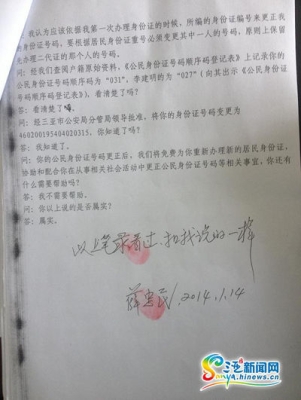 我认为应该依据我第一次办理身份证的时候，所编的身份证编号来更正我
的身份证号码。要根据居民身份证重号必须变更其中一人的号码，原则上保留
先办理二代证的那个人的号码。
问：经我们查阅户籍原始资料，《公民身份证号码顺序号码登记表》上记录你的
公民身份证号码顺序码为“031”，李建明的为“027”（向其出示《公民身份证
号码顺序码登记表》），看清楚了吗？
答：看清楚了
问：经三亚市公安局分管局领导批准，将你的身份证号码变更为
460200195404020315，你知道了吗？
答：我知道了。
问：你的公民身份证号码更正后，我们将免费为你重新办理新的居民身份证，
协助和配合你在从事相关社会活动中更正公民身份证号码等相关事宜，你还有
什么需要帮助吗？
答：我不需要帮助。
问：你以上说的是否属实？
答：属实。
以上笔录看过，和我说的一样
2014.1.14
三亚新闻网
Sanya.hinews.cn